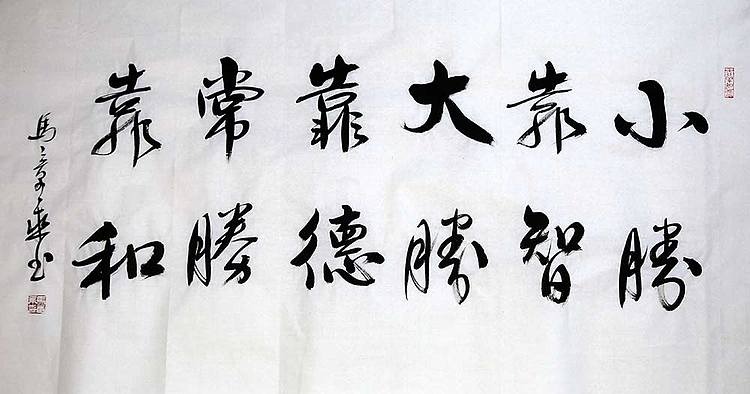 小勝
靠智
大勝
靠德
常勝
靠和
馬章乘书